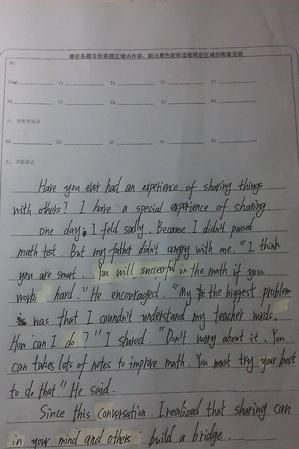 请在各题目的答题区域内作答，超出黑色矩形边框限定区域的答案无效
Have you ever had an experience of sharing things
with others? I have a special experience of sharing
one day, I feld sadly. Because I didn't passed
math test. But my father didn't angry with me. "I think
you are smart. You will successful in the math if you
work hard." He encouraged. "My the biggest problem
was that I coundn't understand my teacher words.
How can I do?" I shared. "Don't worry about it. You
can takes lots of notes to improve math. You must try your best
to do that" He said.
Since this conversation. I realized that sharing can
in your mind and others build a bridge.